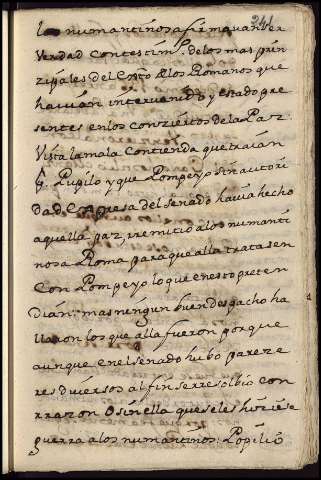 241
los numantinos afirmavan ser
verdad con testim.º de los mas prin
zipales del Cpto de los Romanos que
havian intervenido y estado pre
sentes en los conziertos de la Paz.
Vista la mala contienda que traian
q. Pupilo y que Pompeyo sin autori
dad expresa del Senado havia hecho
aquella paz, remitio a los numanti
nos a Roma para que alla tratasen
con Pompeyo lo que en esto preten
dian: mas ningun buen despacho ha
llaron los que alla fueron porque
aunque en el senado hubo parezе
res diversos al fin se rresolbio con
rrazon o sin ella que se les hiziese
guerra a los numantinos: Popilio